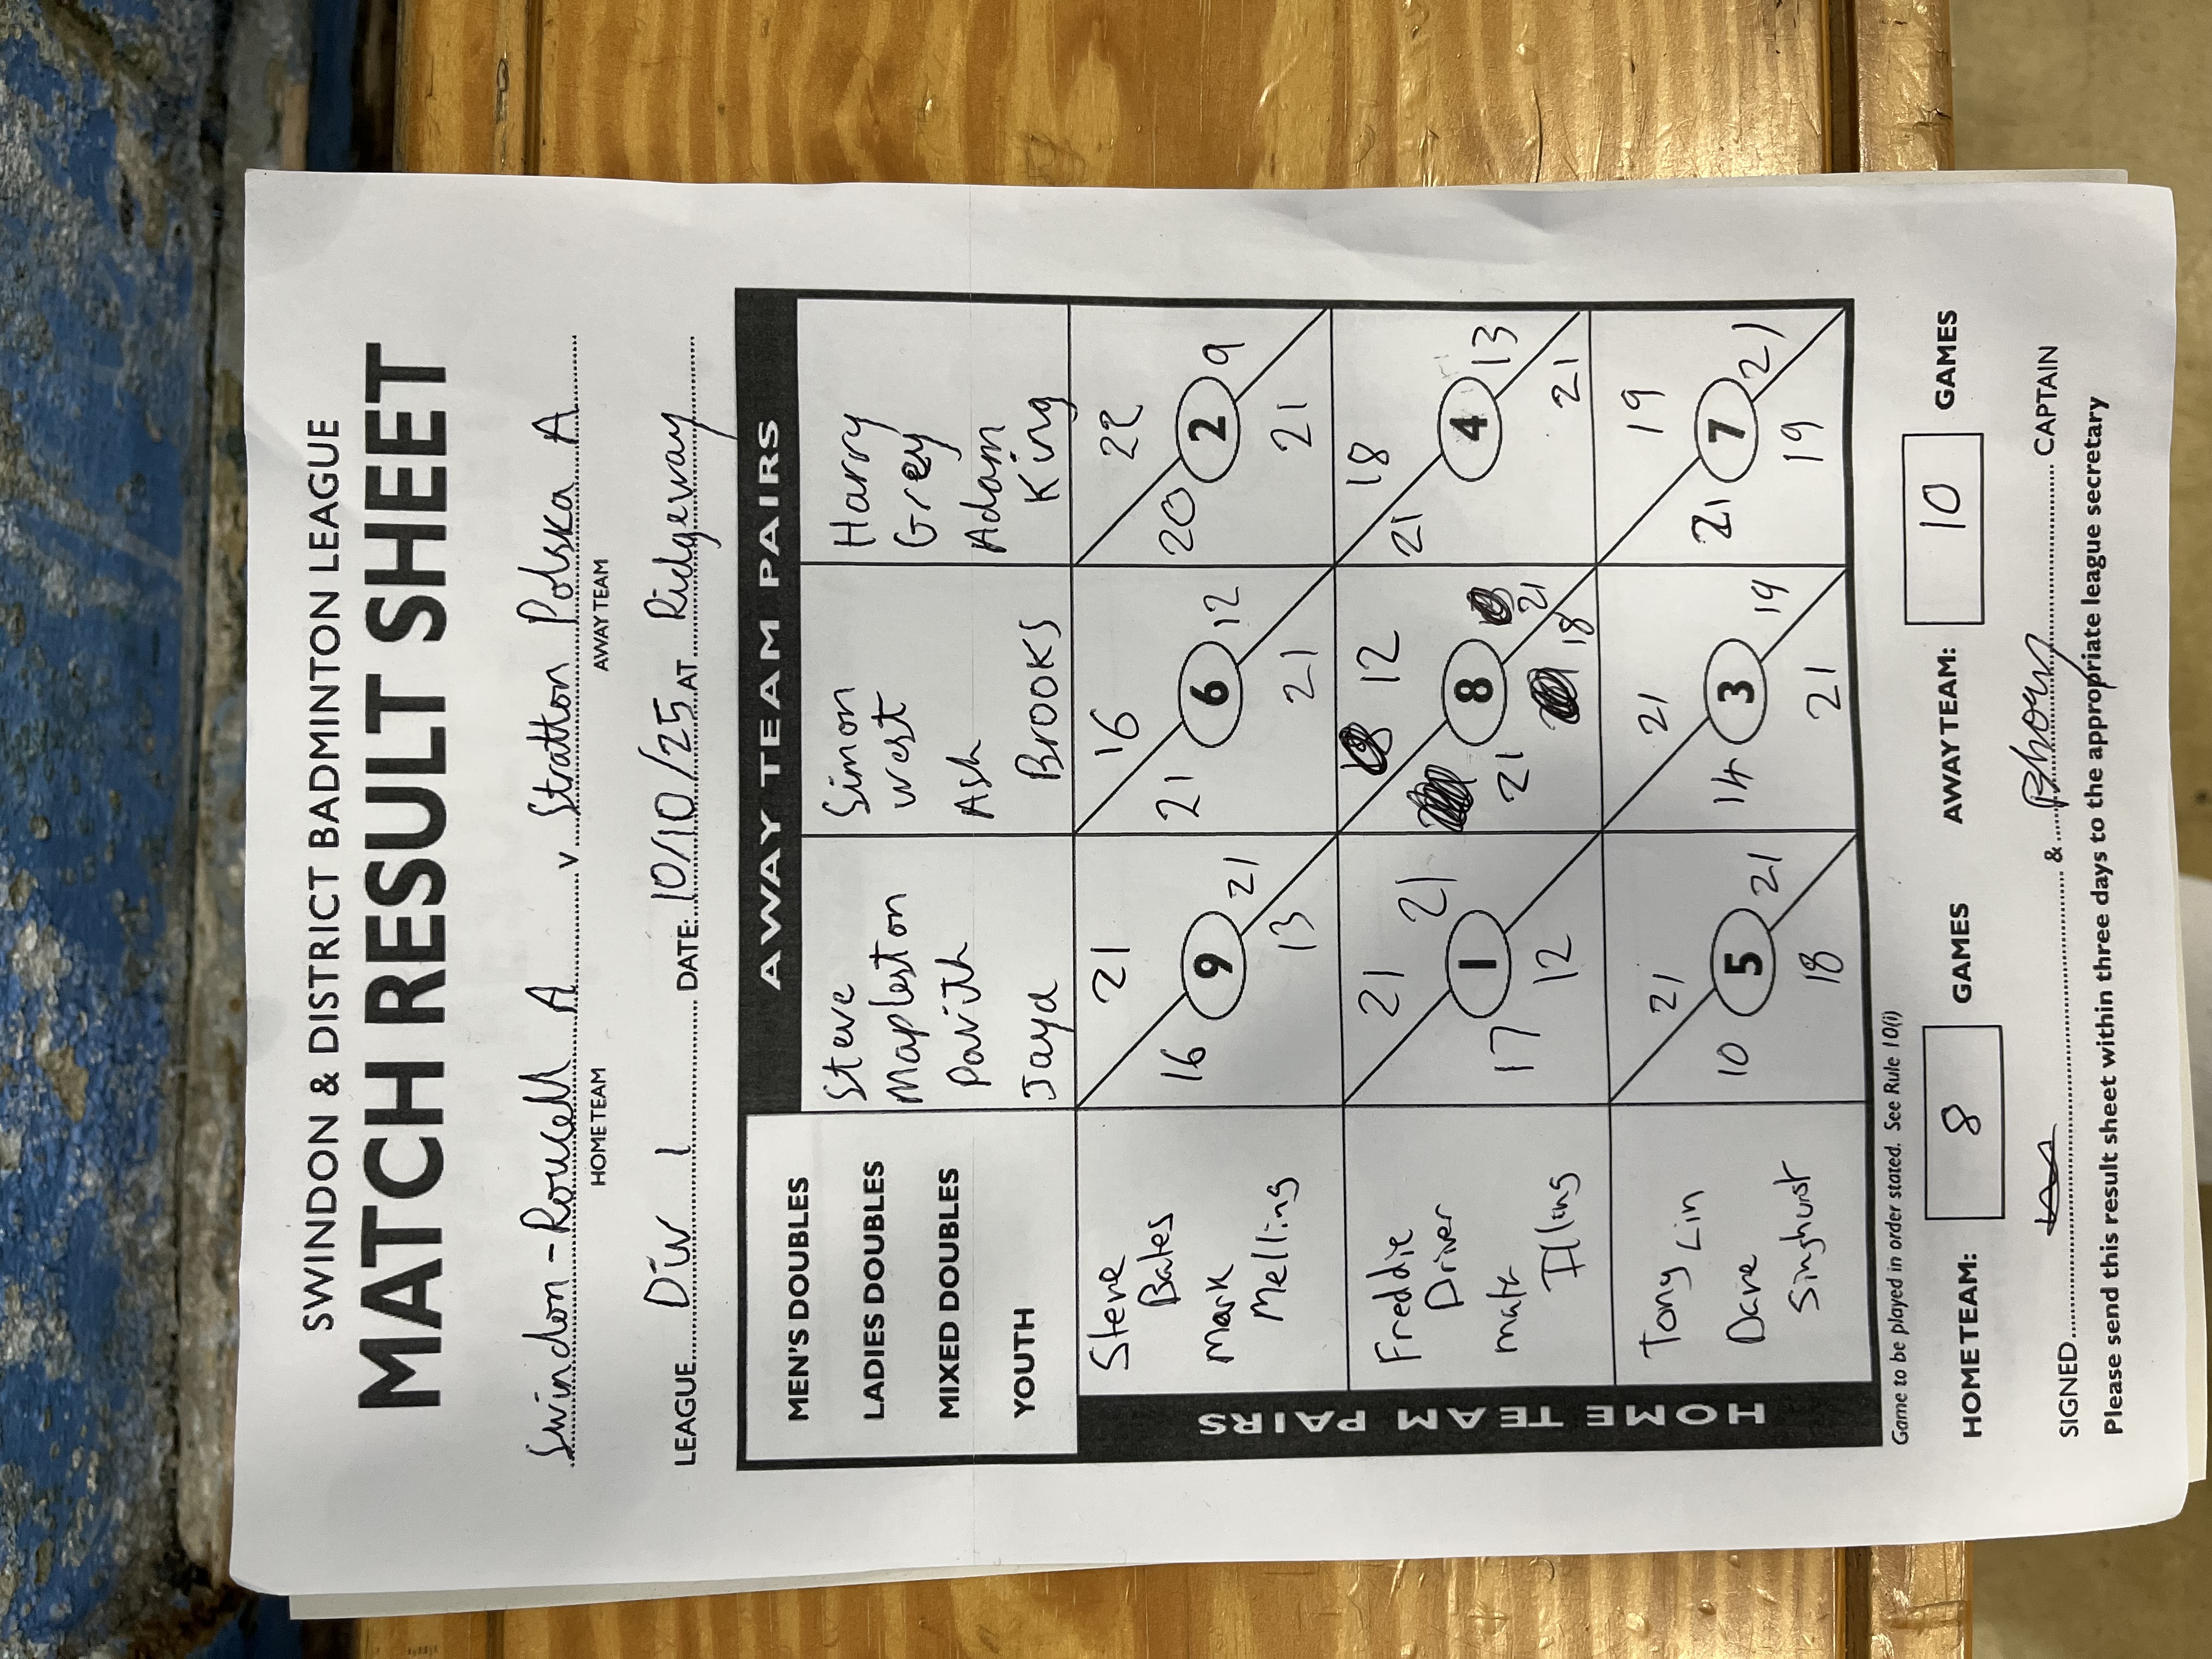 SWINDON & DISTRICT BADMINTON LEAGUE
MATCH RESULT SHEET
Swindon-Roucell A v Stratton Polska A
HOME TEAM AWAY TEAM
LEAGUE Div 1 DATE: 10/10/25 AT Ridgeway
AWAY TEAM PAIRS
MEN'S DOUBLES
LADIES DOUBLES
MIXED DOUBLES
YOUTH
Steve
Mapleston
Pavith
Jaya
Simon
West
Ash
Brooks
Harry
Grey
Adam
King
HOME TEAM PAIRS
Steve
Bates
Mark
Melling
21
16 9 21
13
16
21 6 12
21
22
20 2 9
21
Freddie
Driver
Matt
Illing
21 21
1
17 12
12
8 21
21 18
18
21 4 13
21
Tony Lin
Dave
Singhurst
21
10 5 21
18
21
14 3 19
21
19
21 7 21
19
Game to be played in order stated. See Rule 10(i)
HOME TEAM: 8 GAMES AWAY TEAM: 10 GAMES
SIGNED & CAPTAIN
Please send this result sheet within three days to the appropriate league secretary